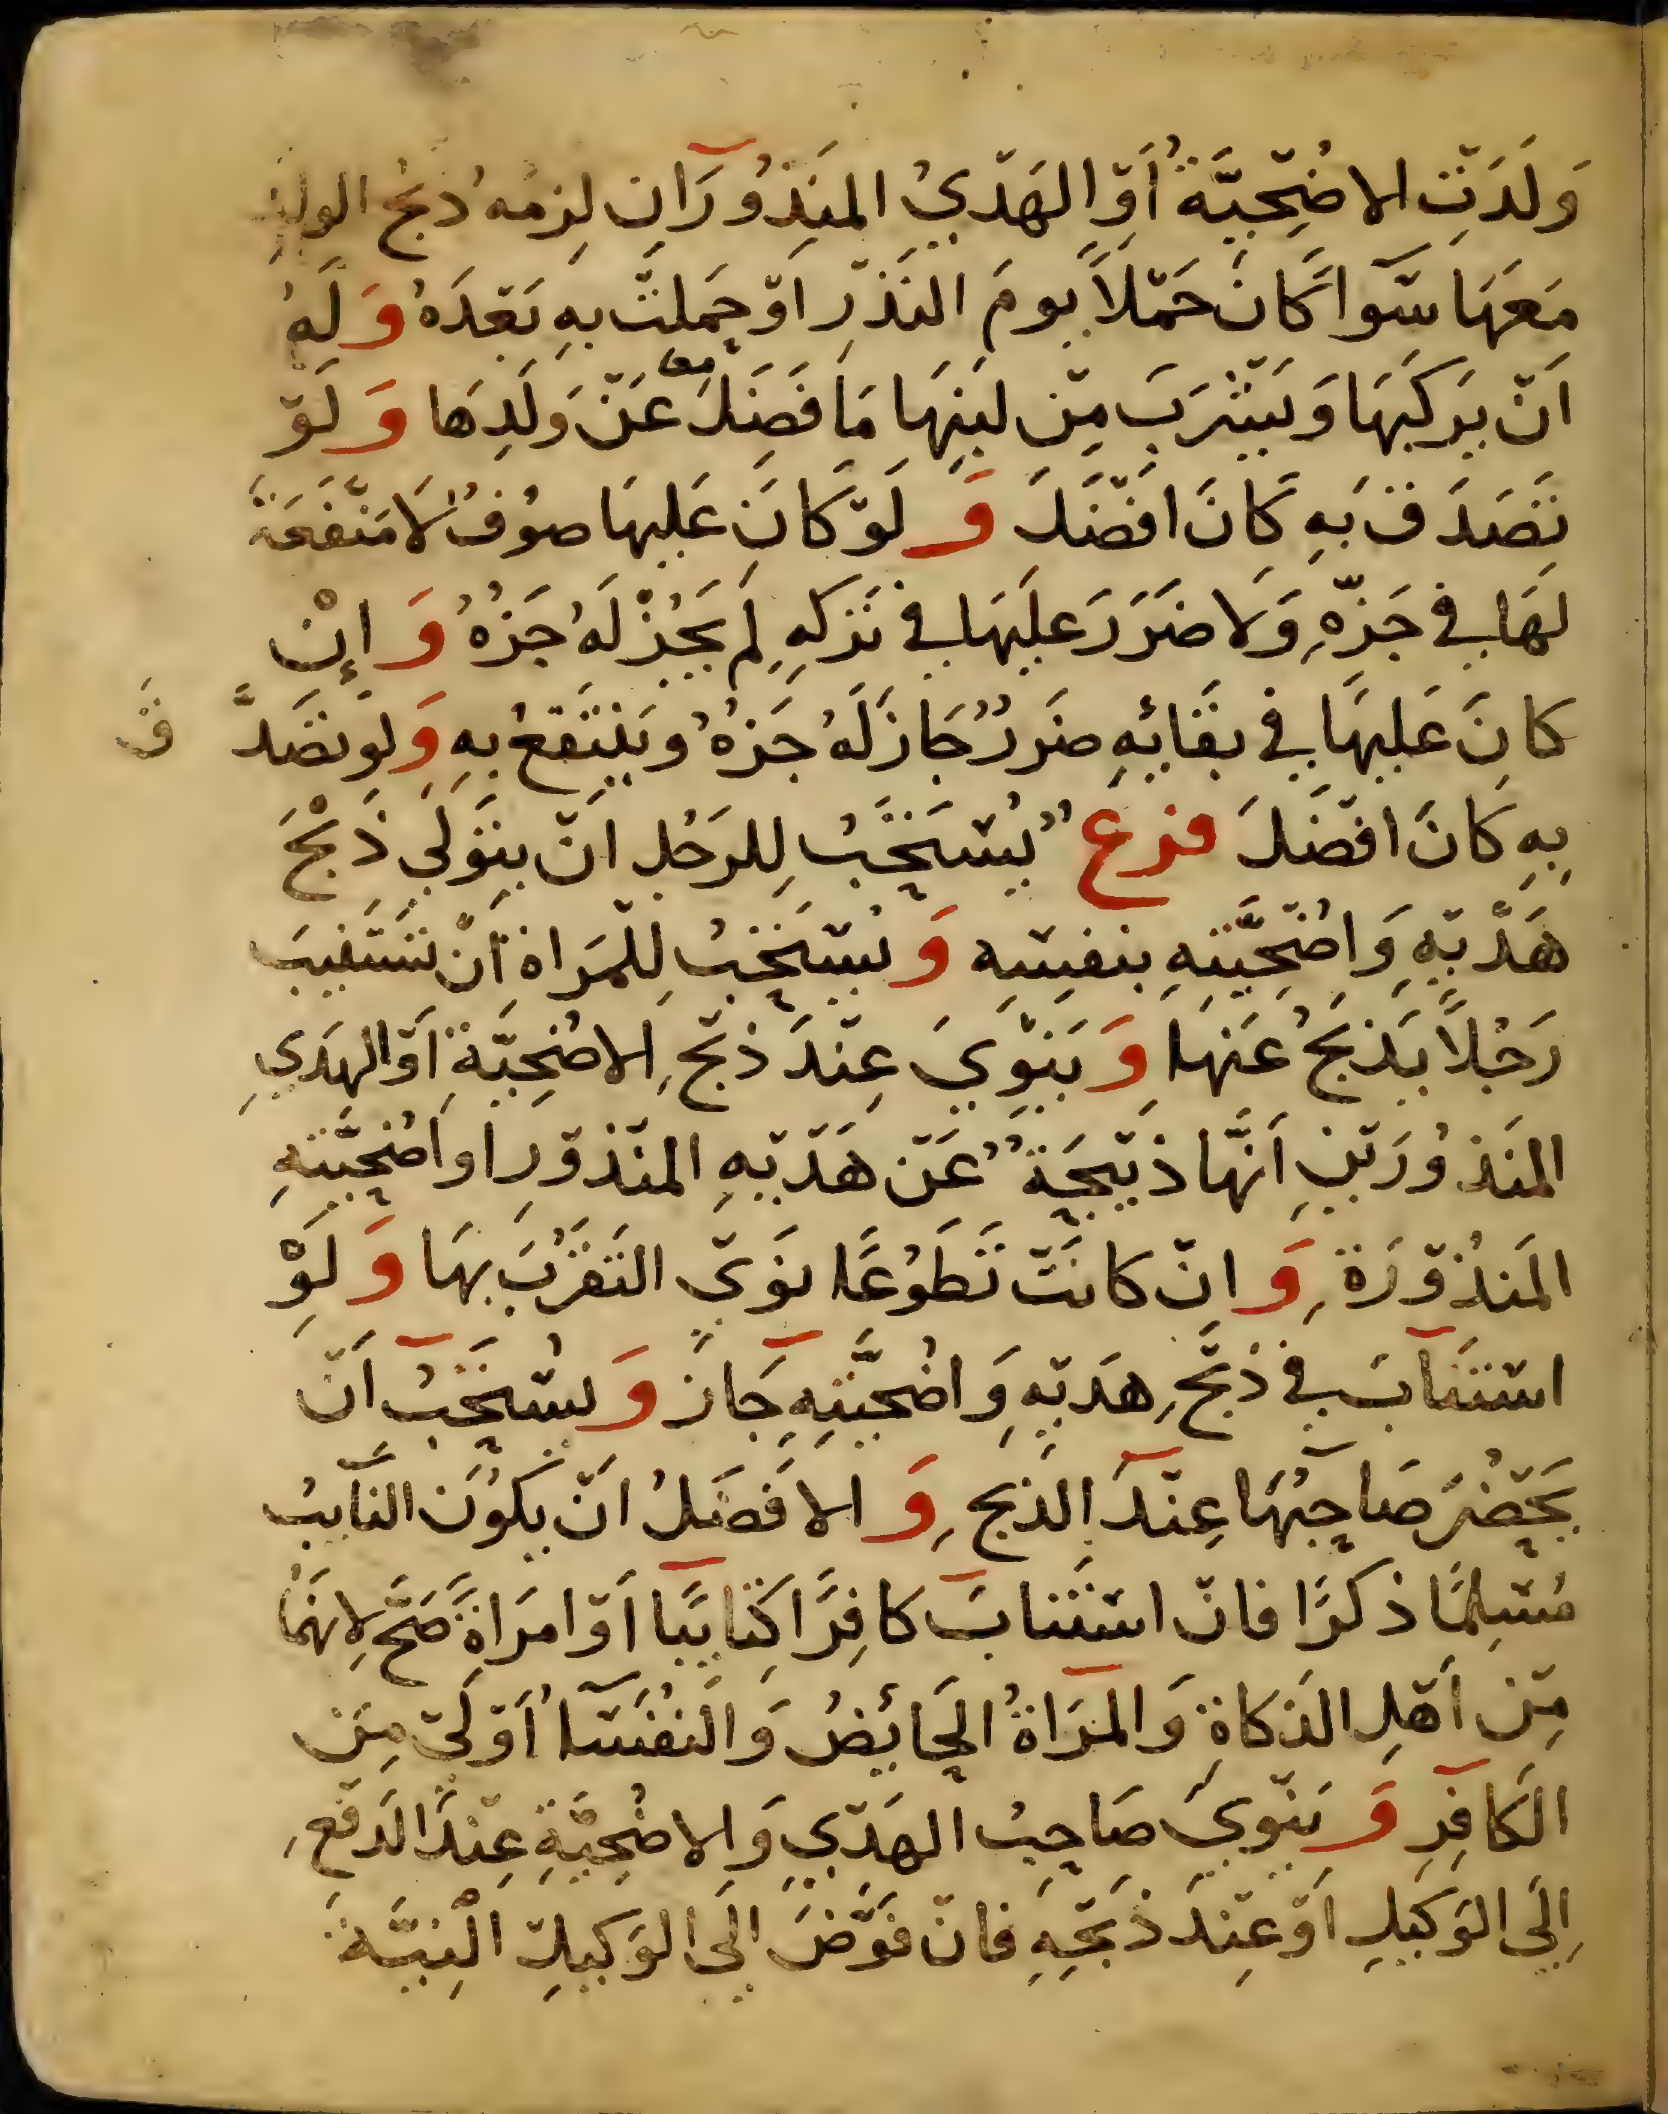 وَلَدَتِ الاضْحِيَّةُ أَوْ الهَدْيُ المَنِذُورَانِ لزِمَهُ ذبْحُ الولدِ
مَعَهَا سَوآ كَانَ حَمْلاً يومَ النَذْرِ اوْ حَملَتْ بهِ بَعْدَهُ وَلَهُ
اَنْ يَركَبَهَا وَيَشْرَبَ مِنْ لبَنِهَا مَا فَضَلَ عَنْ وَلَدِهَا وَلَوْ
تَصَدَقَ بهِ كَانَ افْضَلَ وَلَوْ كَانَ عَليهَا صُوفٌ لاَ مَنْفَعَةَ
لَهَا في جَزِّهِ وَلا ضَرَرَ عَليهَا في تَركهِ لَم يَجُزْ لَهُ جَزُهُ وَإنْ
كانَ عَليهَا في بقَائِهِ ضَررٌ جَازَ لَهُ جَزُهُ ويَنْتَفعُ بهِ وَلو تصَدَّ قَ
بِهِ كَانَ افْضَلَ فرع يُسْتَحَبُ لِلرَجُلِ اَنْ يتَوَلي ذَبْحَ
هَدْيِهِ وَاضْحِيَّتهِ بنفسِهِ وَيُسْتَحَبُ لِلْمَراةِ اَنْ تَسْتَنيبَ
رَجُلاً يَذبَحُ عَنهَا وَيَنْوِيَ عِنْدَ ذبْحِ الاضْحِيَّةِ اَوْ الهَدي
المَنذُورَتينِ اَنَّهَا ذبْيحَةٌ عَنْ هَدْيهِ المنْذوْرِ او اضْحِيَّتهِ
المَنذُوْرَةِ وَانْ كانَتْ تَطَوُعًا نوَى التَقَرُبَ بهَا وَلَوْ
اسْتَنَابَ في ذبْحِ هَدْيهِ وَاضْحيَّتهِ جَازَ وَيسْتَحَبُ اَنْ
يَحْضُرَ صَاحِبُهَا عِنْدَ الذبحِ وَالافَضَلُ انْ يكوُنَ النَايبُ
مُسْلِمًا ذكَرًا فانْ اسْتَنابَ كافِرًا كِتابيًا اَوْ امرَاةً صَحَّ لانهَمُا
مِنْ اَهْلِ الذكاةِ وَالمَرَاةُ الحَائِضُ وَالنُفَسَآ اَوْلَى مِنَ
الكَافِرِ وَيَنْوِيَ صَاحِبُ الهَدْيِ وَالاضْحِيَّةِ عِنْدَ الدَفْعِ
اِلَى الوَكيلِ اَوْ عِنْدَ ذبْحِهِ فانْ فوَّضَ الَى الوَكيلِ الْنِيَّةَ